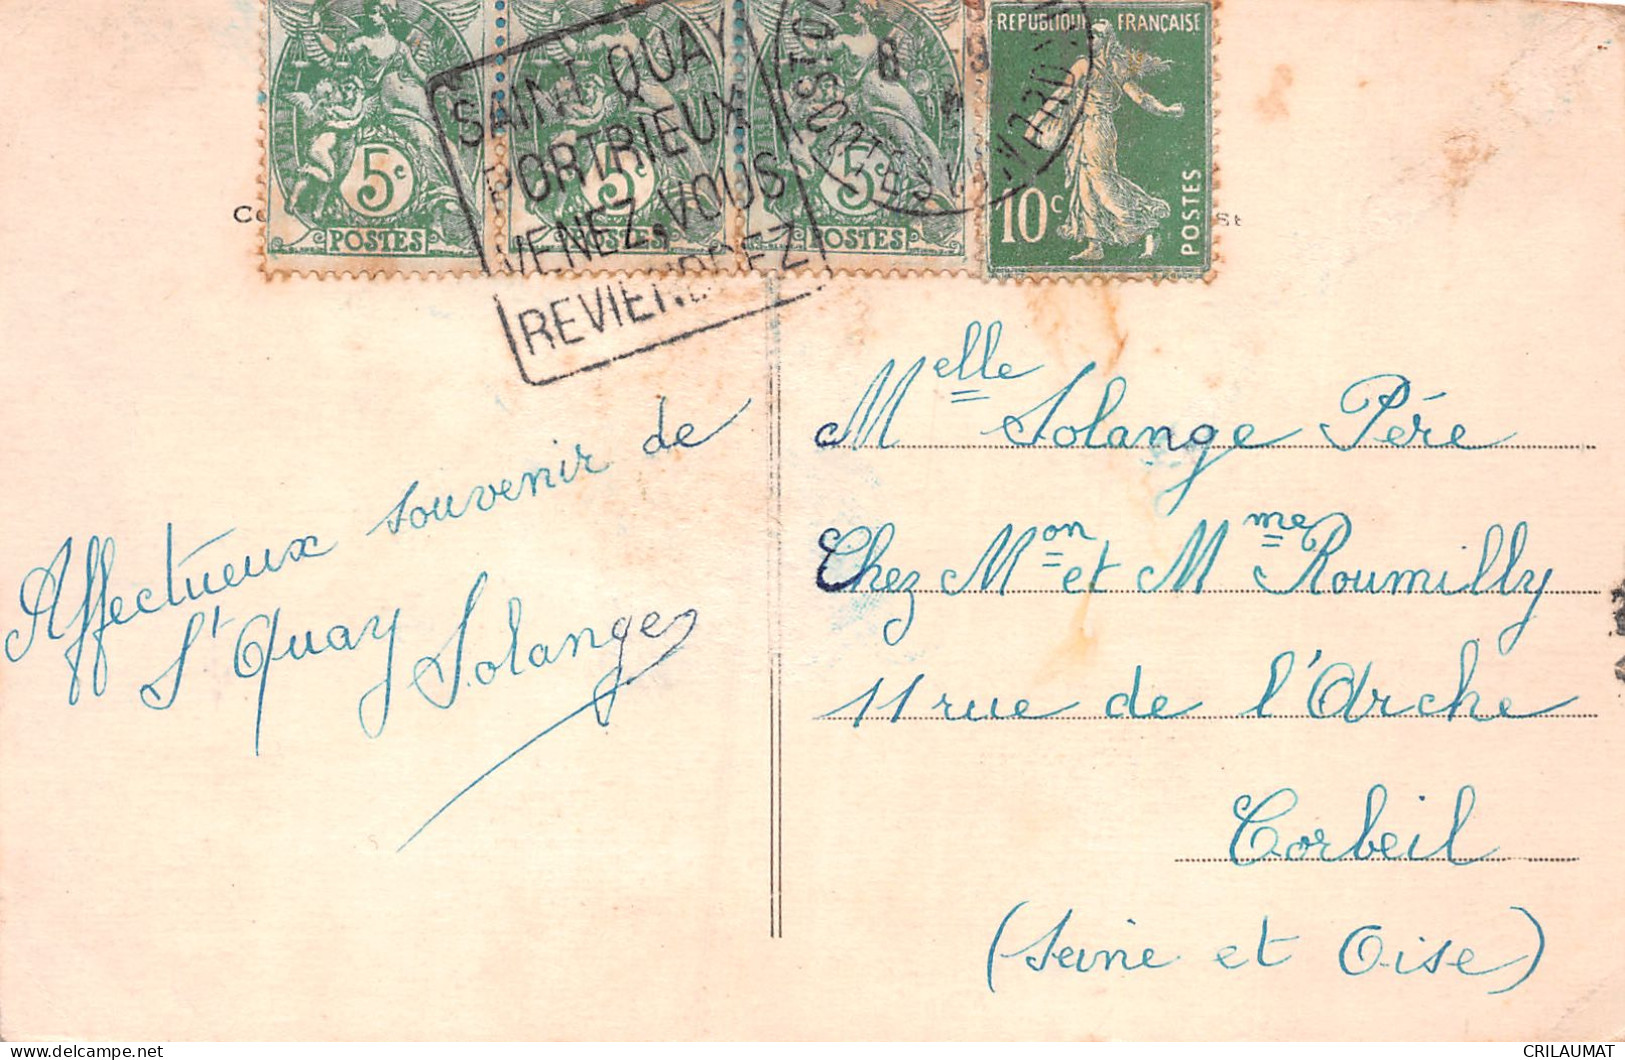 REPUBLIQUE FRANÇAISE
5c
POSTES
5c
POSTES
5c
POSTES
10c
POSTES
SAINT QUAY
PORTRIEUX
VENEZ, VOUS
REVIENDREZ
COTES DU NORD
8
Affectueux souvenir de
St Quay Solange
Melle Solange Père
Chez Mon et Mme Roumilly
11 rue de l'Arche
Corbeil
(Seine et Oise)
CRILAUMAT